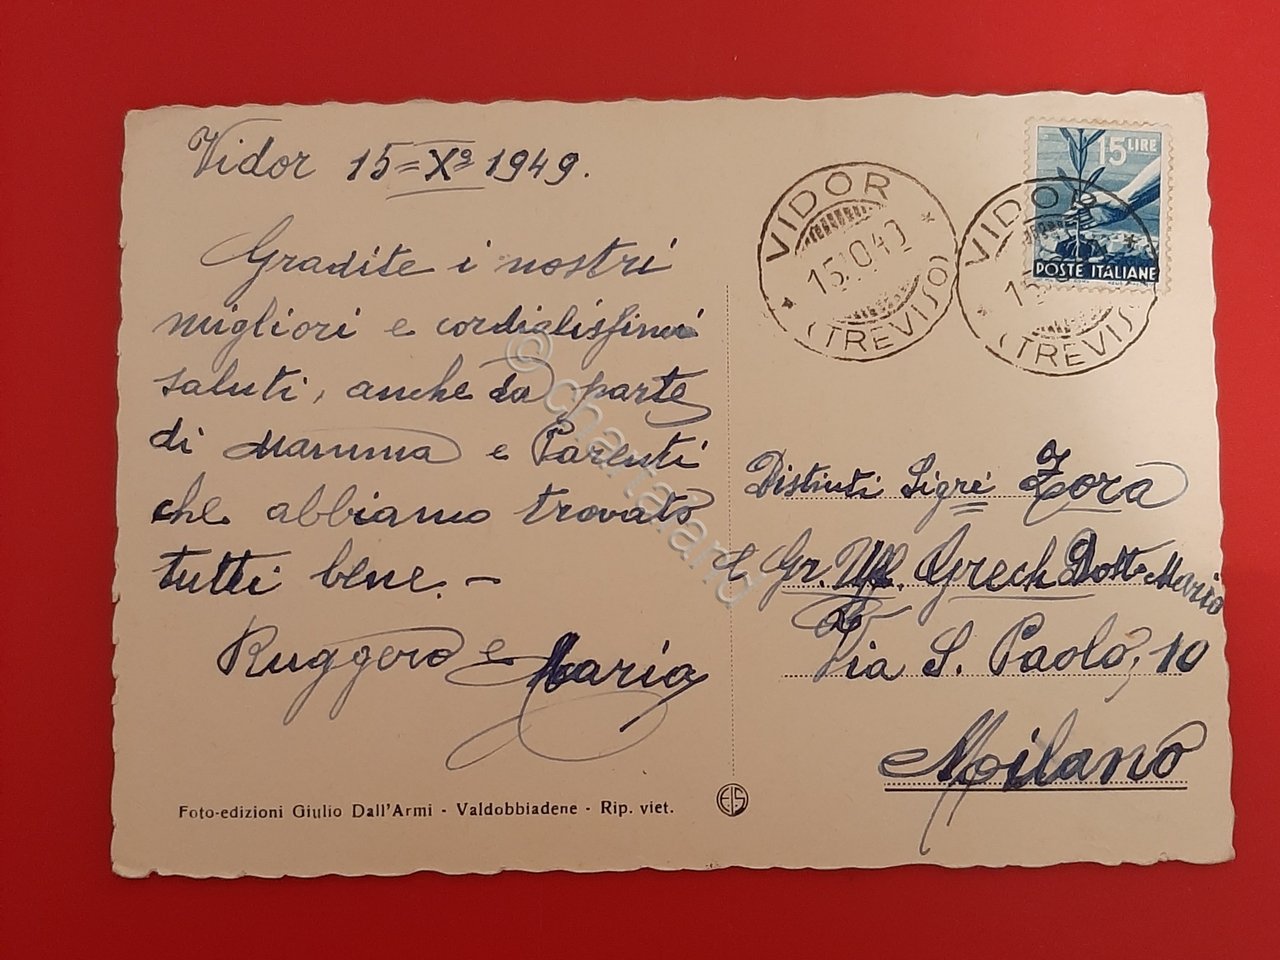 Vidor 15=Xº 1949.
Gradite i nostri
migliori e cordialissimi
saluti, anche da parte
di Mamma e Parenti
che abbiamo trovato
tutti bene. –
Ruggero e Maria
Foto-edizioni Giulio Dall'Armi - Valdobbiadene - Rip. viet.
VIDOR
(TREVISO)
VIDOR
(TREVISO)
15 LIRE
POSTE ITALIANE
Distinti Sigri Zora
e Gr. Uff. Grech Dott. Mario
Via S. Paolo, 10
Milano
© chartaland